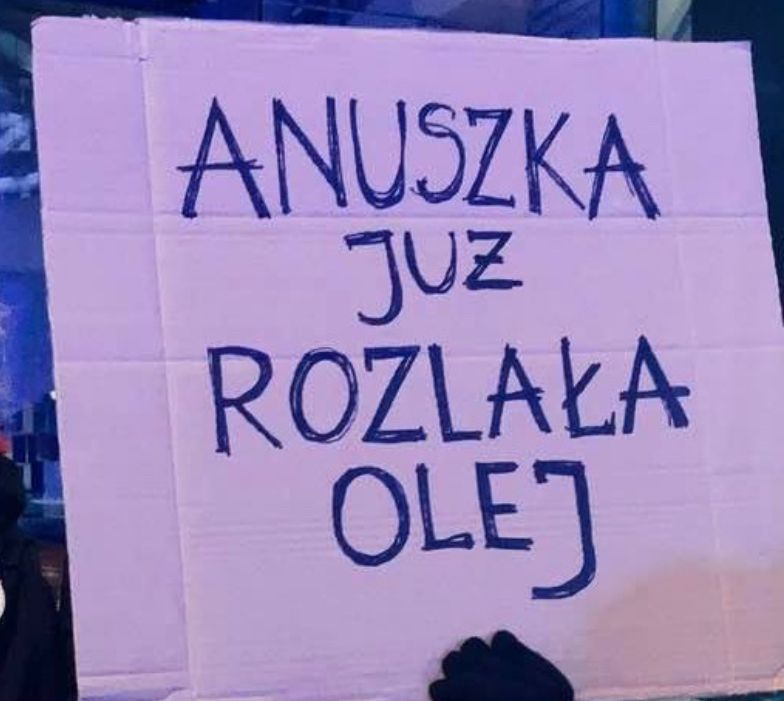 ANUSZKA
JUƵ
ROZLAŁA
OLEJ